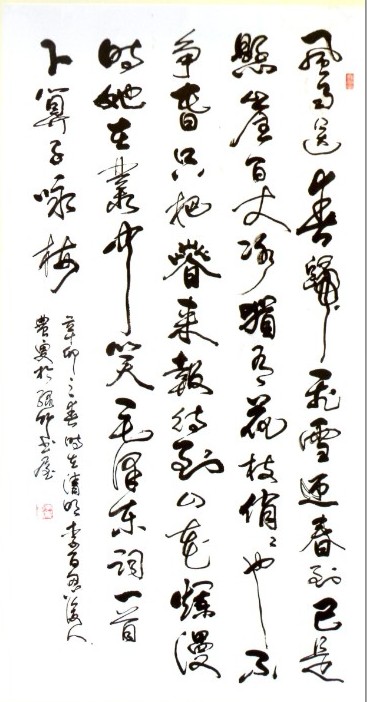 風雨送春歸飛雪迎春到已是
懸崖百丈冰猶有花枝俏〻也不
争春只把春来報待到山花爛漫
時她在叢中笑毛澤東詞一首
卜算子咏梅
辛卯之春時在清明李百忍後人